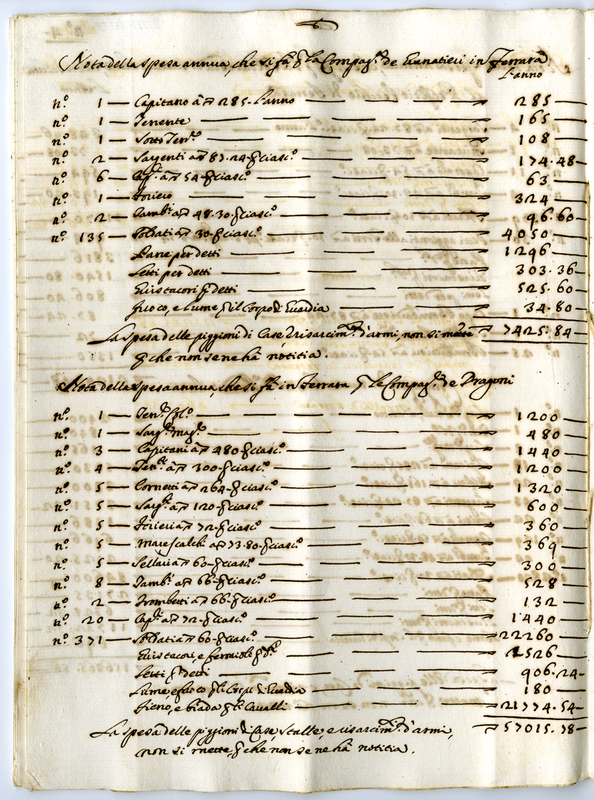 Nota della spesa annua, che si fà p la Compag.ª de Granatieri in Ferrara
L'anno
n.º 1 — Capitano à 285 - l'anno — 285
n.º 1 — Tenente — 165
n.º 1 — Sotto Ten.te — 108
n.º 2 — Sargenti à 87.24 p ciasc.º — 174.48
n.º 6 — Cap.li à 54 p ciasc.º — 63
n.º 1 — Foriero — 324
n.º 2 — Tamb.ri à 48.30 p ciasc.º — 96.60
n.º 135 — Soldati à 30 p ciasc.º — 4050
Pane per detti — 1296
Letti per detti — 303.36
p detti — 525.60
Fuoco, e lume p il Corpo di Guardia — 34.80
La spesa delle piggioni di Case, e risarcim.ti d'armi, non si mette — 7425.84
p che non se ne hà notitia.
Nota della spesa annua, che si fà in Ferrara p le Compag.e de Dragoni
n.º 1 — Ten.te — 1200
n.º 1 — Sarg.te mag.re — 480
n.º 3 — Capitani à 480 p ciasc.º — 1440
n.º 4 — Ten.ti à 300 p ciasc.º — 1200
n.º 5 — Cornetti à 264 p ciasc.º — 1320
n.º 5 — Sarg.ti à 120 p ciasc.º — 600
n.º 5 — Forieri à 72 p ciasc.º — 360
n.º 5 — Marescalchi à 73.80 p ciasc.º — 369
n.º 5 — Sellari à 60 p ciasc.º — 300
n.º 8 — Tamb.ri à 66 p ciasc.º — 528
n.º 2 — Trombetti à 66 p ciasc.º — 132
n.º 20 — Cap.li à 72 p ciasc.º — 1440
n.º 371 — Soldati à 60 p ciasc.º — 22260
e ferraioli p — 2526
Letti p detti — 906.24
Lume, e fuoco p li Corpi di Guardia — 180
Fieno, e biada p li Cavalli — 21774.54
La spesa delle piggioni di Case, Stalle, e risarcim.ti d'armi, — 57015.78
non si mette, p che non se ne hà notitia.